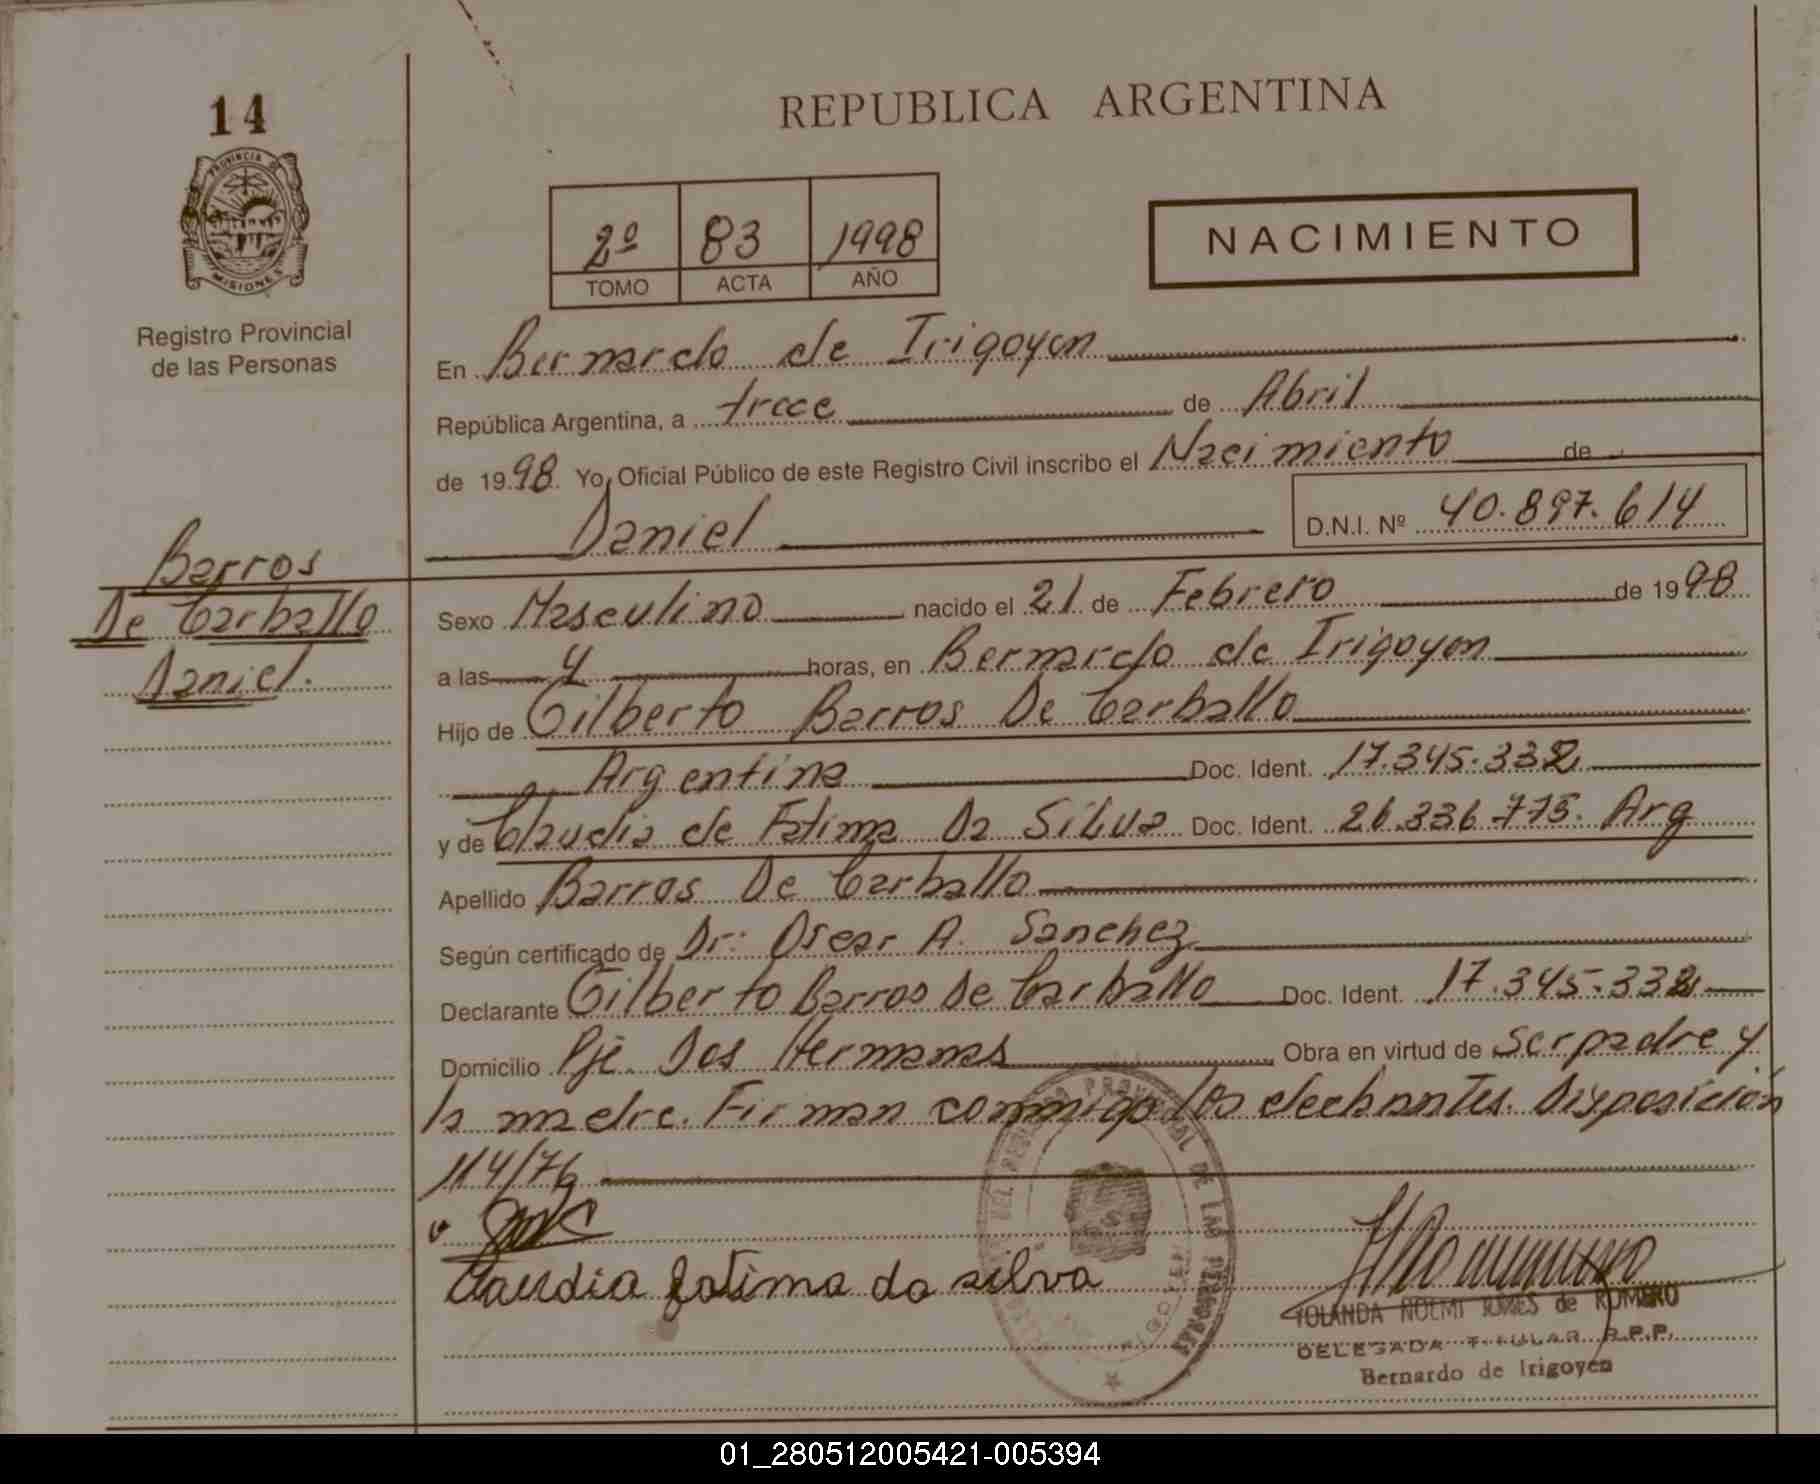 14
PROVINCIA DE
MISIONES
Registro Provincial
de las Personas
REPUBLICA ARGENTINA
2º 83 1998
TOMO ACTA AÑO
NACIMIENTO
En Bernardo de Irigoyen
República Argentina, a trece de Abril
de 1998 Yo, Oficial Público de este Registro Civil inscribo el Nacimiento de
Daniel D.N.I. Nº 40.897.614
Barros
De Carballo
Daniel.
Sexo Masculino nacido el 21 de Febrero de 1998
a las 4 horas, en Bernardo de Irigoyen
Hijo de Gilberto Barros De Carballo
Argentina Doc. Ident. 17.345.332
y de Claudia de Fatima Da Silva Doc. Ident. 26.336.775. Arg
Apellido Barros De Carballo
Según certificado de Dr: Oscar A. Sanchez
Declarante Gilberto Barros De Carballo Doc. Ident. 17.345.332
Domicilio Pje. Dos Hermanas Obra en virtud de ser padre y
la madre. Firman conmigo los declarantes. Disposición
114/76
Claudia fatima da silva
YOLANDA NOEMI de ROMERO
DELEGADA TITULAR R.P.P.
Bernardo de Irigoyen
01_280512005421-005394